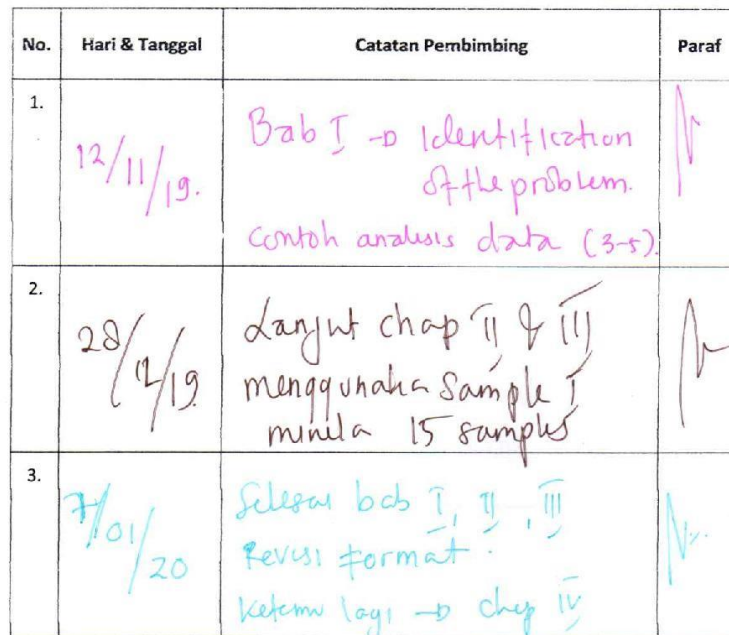 No. Hari & Tanggal Catatan Pembimbing Paraf
1.
12/11/19.
Bab I → Identification
of the problem.
Contoh analisis data (3-5).
2.
28/12/19
Lanjut chap II & III
menggunaka sample I
15 samples
3.
7/01/20
Selesai bab I, II, III
Revisi format.
Ketemu lagi → chap IV